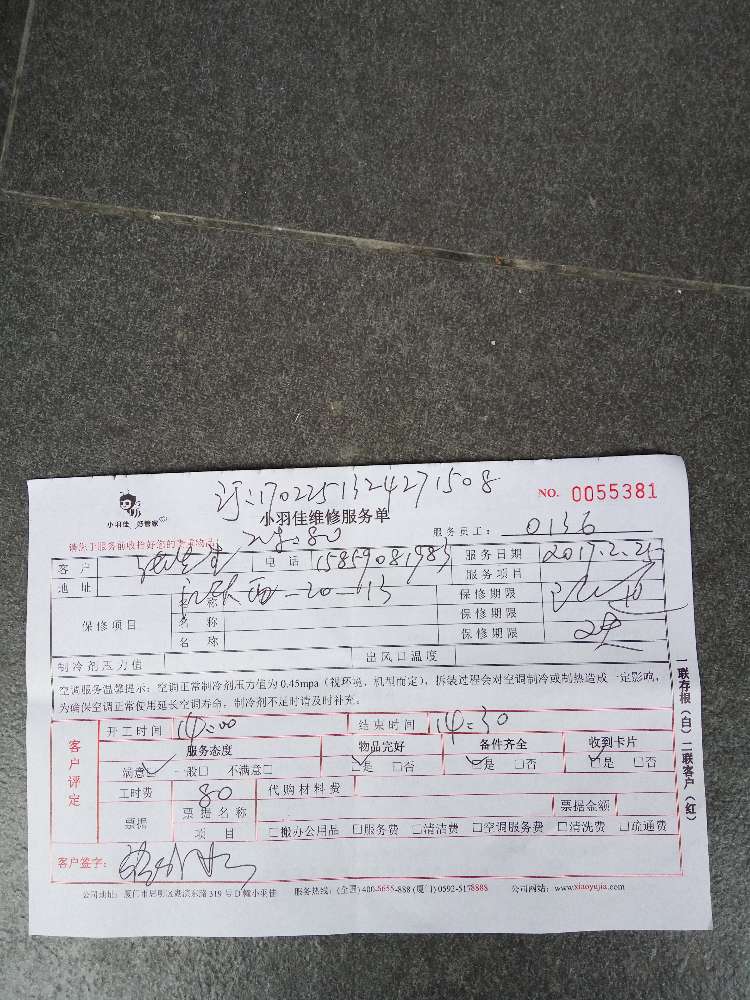 订:1702251324271508
小羽佳 好管家
小羽佳维修服务单
NO. 0055381
请您于服务前收拾好您的贵重物品!
80
服务员工: 0136
客 户 电 话 15859081983 服务日期 2017.2.25
地 址 20-13 服务项目
保修项目 名 称 保修期限
名 称 保修期限
名 称 保修期限
制冷剂压力值 出风口温度
空调服务温馨提示:空调正常制冷剂压力值为0.45mpa(视环境、机型而定),拆装过程会对空调制冷或制热造成一定影响,
为确保空调正常使用延长空调寿命,制冷剂不足时请及时补充。
客户评定
开工时间 14:00 结束时间 14:30
服务态度 物品完好 备件齐全 收到卡片
满意 一般□ 不满意□ 是 □否 是 □否 是 □否
工时费 80 代购材料费
票据 票据名称 票据金额
项 目 □搬办公用品 □服务费 □清洁费 □空调服务费 □清洗费 □疏通费
客户签字:
公司地址:厦门市思明区湖滨东路319号D幢小羽佳 服务热线:(全国)400-6655-888 (厦门)0592-5178888 公司网站:www.xiaoyujia.com
一联存根(白) 二联客户(红)